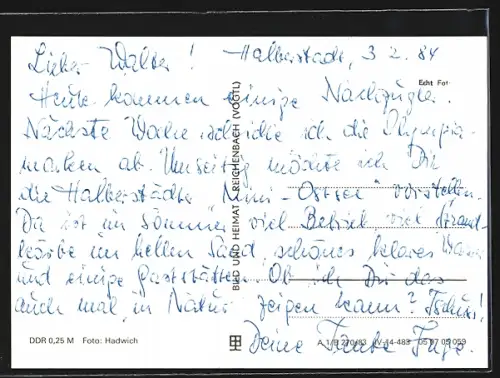 Lieber Walter! Halberstadt, 3 2. 84
Echt Foto
Heute kommen einige Nachzügler.
Nächste Woche schicke ich die Olympia-
marken ab. Umseitig möchte ich Dir
die Halberstädter "Mini-Ostsee" vorstellen.
Da ist im Sommer viel Betrieb, viel Strand-
körbe im hellen Sand, schönes klares Wasser
und einige Gaststätten. Ob ich Dir das
auch mal, in Natur zeigen kann? Tschüs!
Deine Tante Inge.
BILD UND HEIMAT REICHENBACH (VOGTL)
DDR 0,25 M Foto: Hadwich
A 1/B 270/83 IV-14-483 05 07 05 059